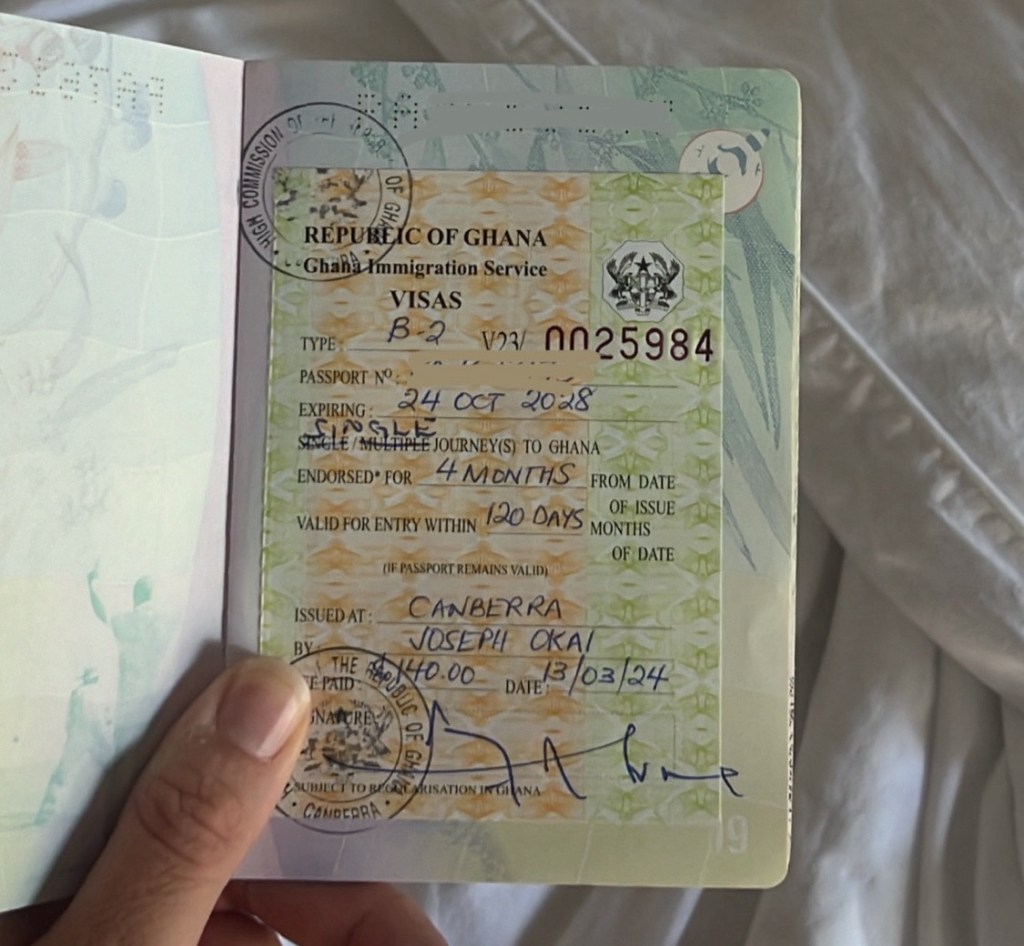 HIGH COMMISSION OF THE OF GHANA
REPUBLIC OF GHANA
Ghana Immigration Service
VISAS
TYPE: B-2 V23/ 0025984
PASSPORT Nº:
EXPIRING: 24 OCT 2028
SINGLE
SINGLE / MULTIPLE JOURNEY(S) TO GHANA
ENDORSED* FOR 4 MONTHS FROM DATE
OF ISSUE
VALID FOR ENTRY WITHIN 120 DAYS MONTHS
OF DATE
(IF PASSPORT REMAINS VALID)
ISSUED AT: CANBERRA
BY JOSEPH OKAI
PAID: $140.00 DATE: 13/03/24
THE REPUBLIC OF GHANA
SUBJECT TO REGULARISATION IN GHANA
CANBERRA
19